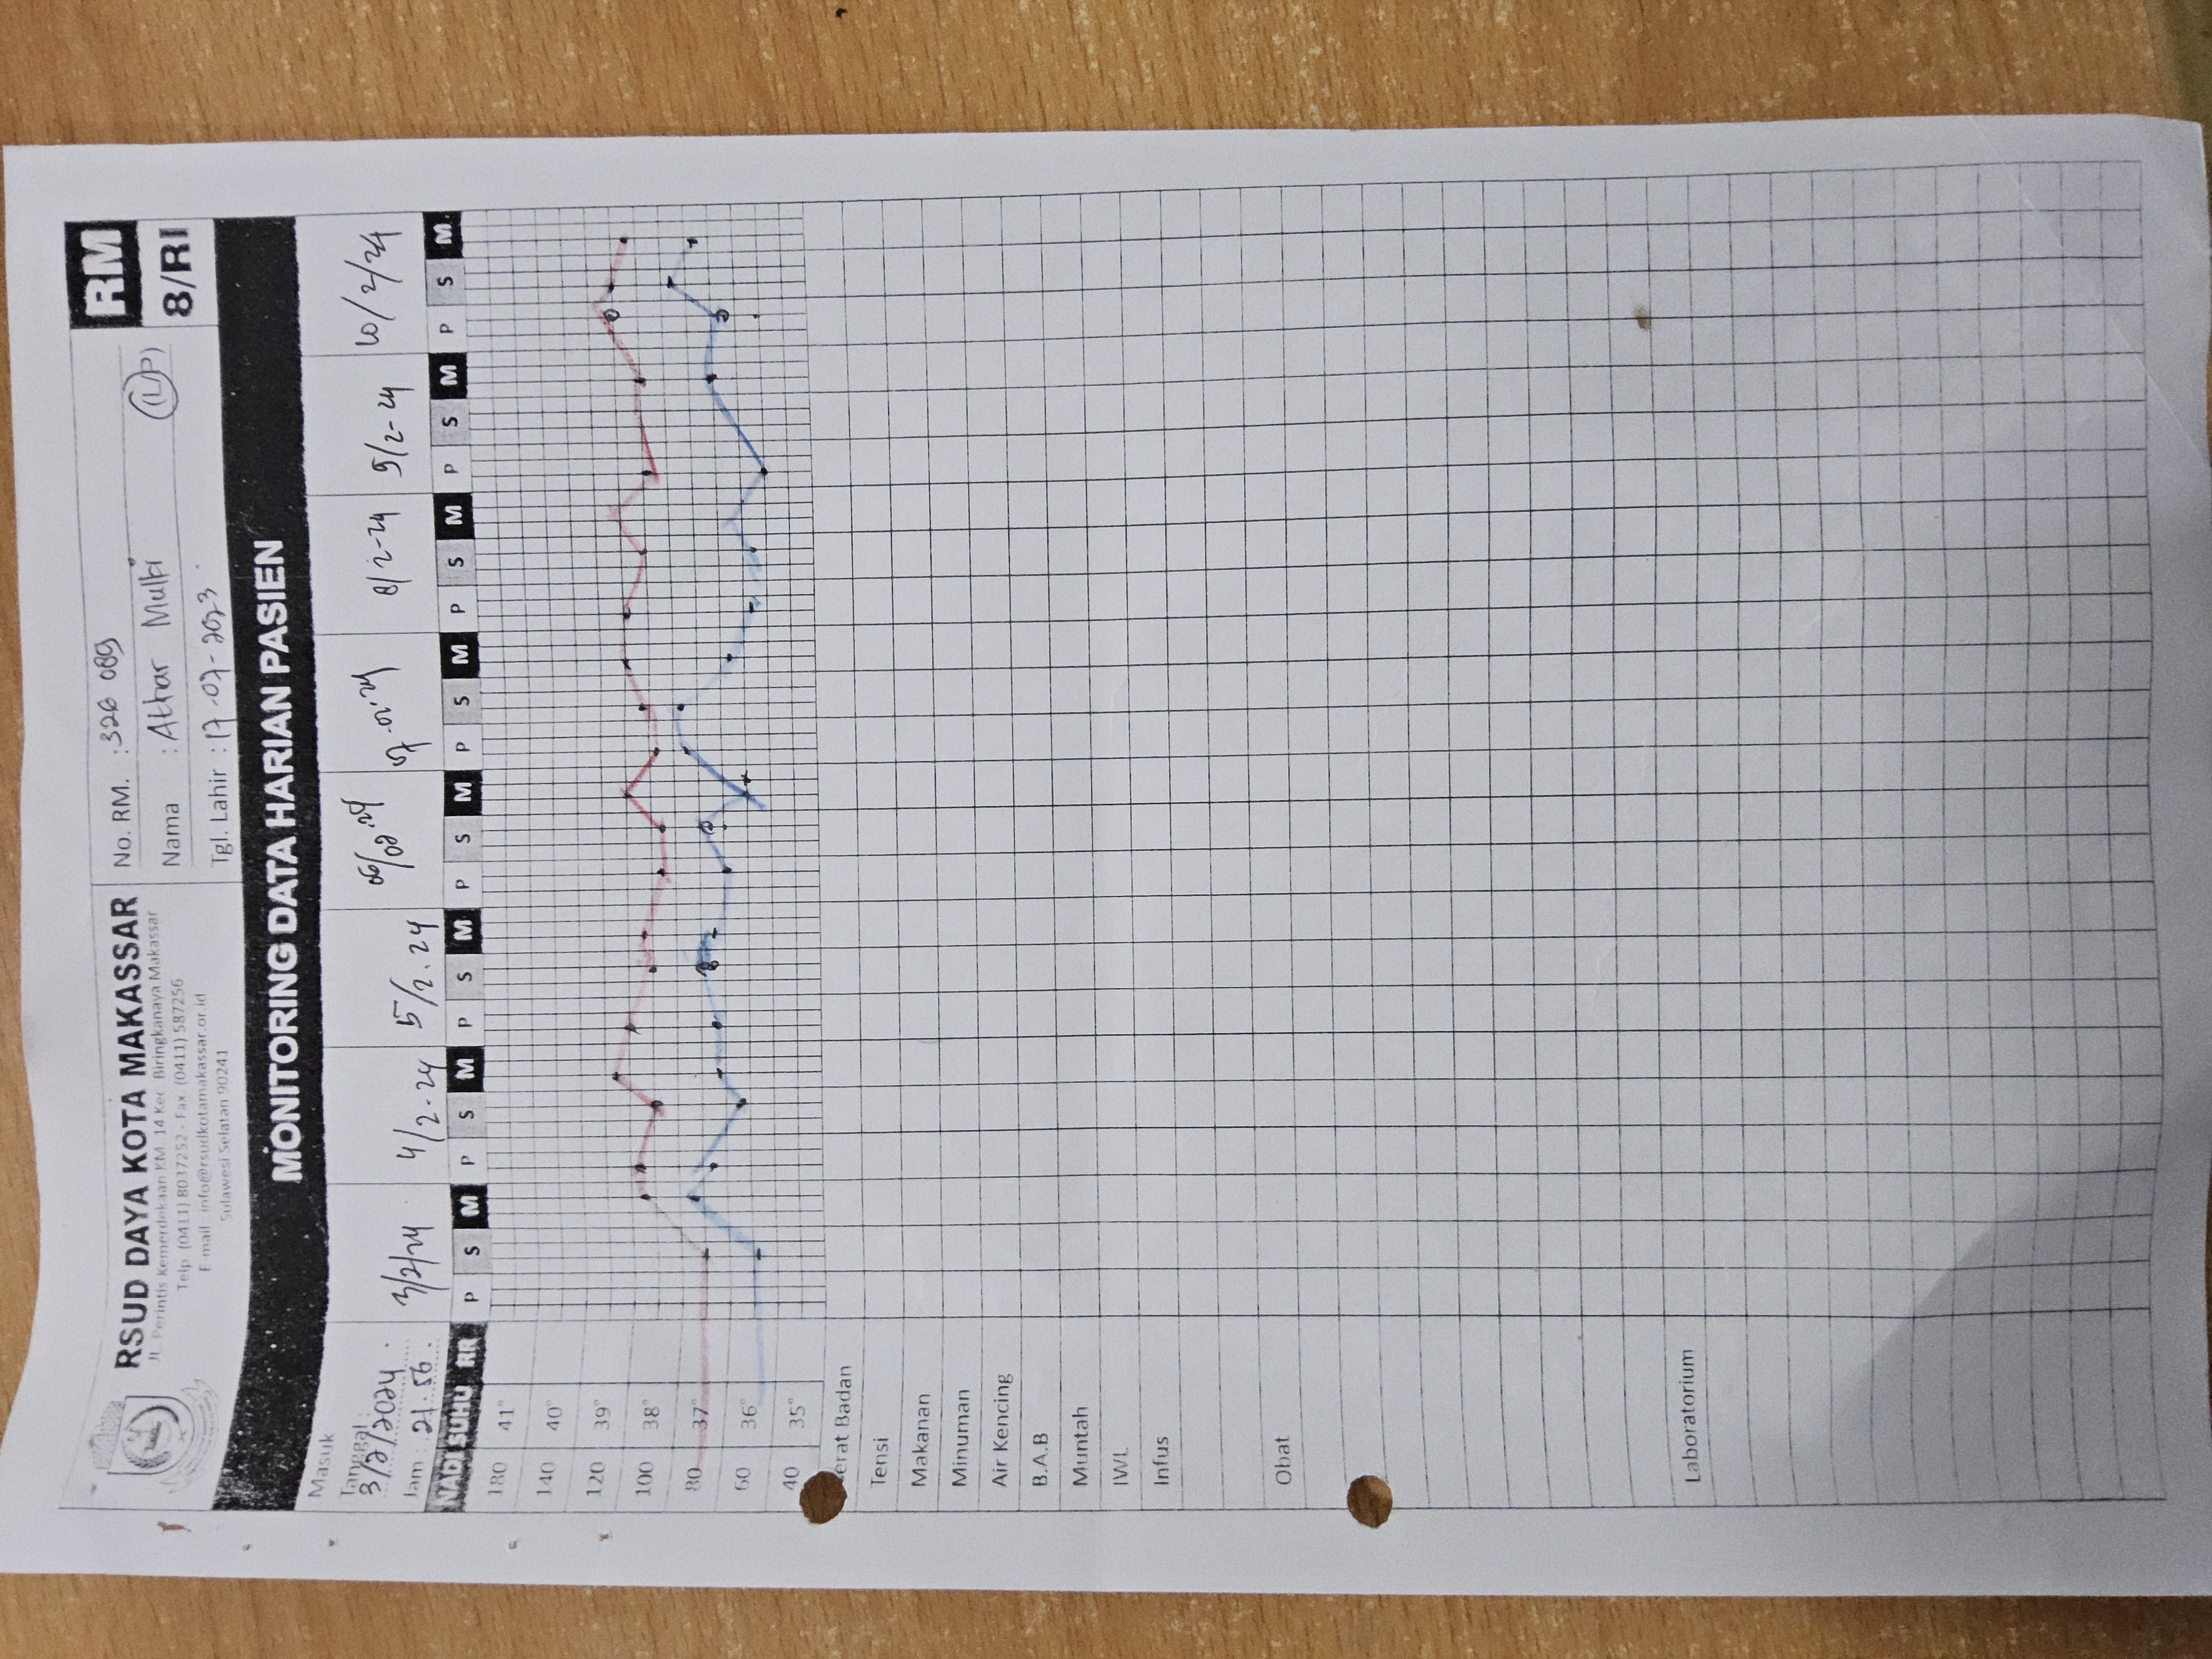 RSUD DAYA KOTA MAKASSAR
JL. Perintis Kemerdekaan KM. 14 Kec. Biringkanaya Makassar
Telp. (0411) 8037252 - Fax. (0411) 587256
E-mail : info@rsudkotamakassar.or.id
Sulawesi Selatan 90241
No. RM. : 326 089
Nama : Athar Mulki (L/P)
Tgl. Lahir : 17-07-2023
RM
8/RI
MONITORING DATA HARIAN PASIEN
Masuk
Tanggal :
3/2/2024
Jam : 21.56
3/2/24 4/2-24 5/2.24 06/02.24 07-02-24 8/2-24 9/2-24 10/2/24
NADI SUHU RR P S M P S M P S M P S M P S M P S M P S M P S M
180 41°
140 40°
120 39°
100 38°
80 37°
60 36°
40 35°
Berat Badan
Tensi
Makanan
Minuman
Air Kencing
B.A.B
Muntah
IWL
Infus
Obat
Laboratorium